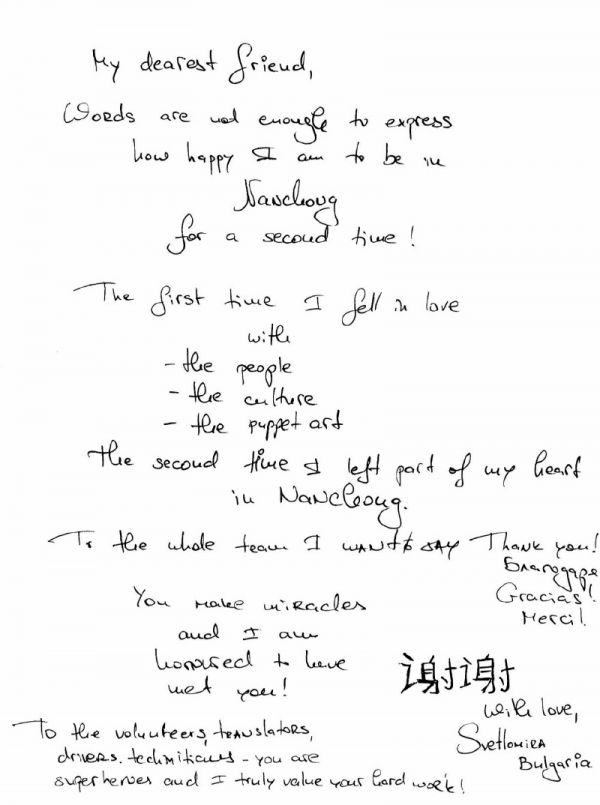 My dearest friend,
Words are not enough to express
how happy I am to be in
Nanchong
for a second time!
The first time I fell in love
with
- the people
- the culture
- the puppet art
The second time I left part of my heart
in Nanchong.
To the whole team I WANT to SAY Thank you!
Благодаря
Gracias!
Merci!
You make miracles
and I am
honoured to have
met you!
谢谢
With love,
Svetlomira
Bulgaria
To the volunteers, translators,
drivers, technitians - you are
superheroes and I truly value your hard work!